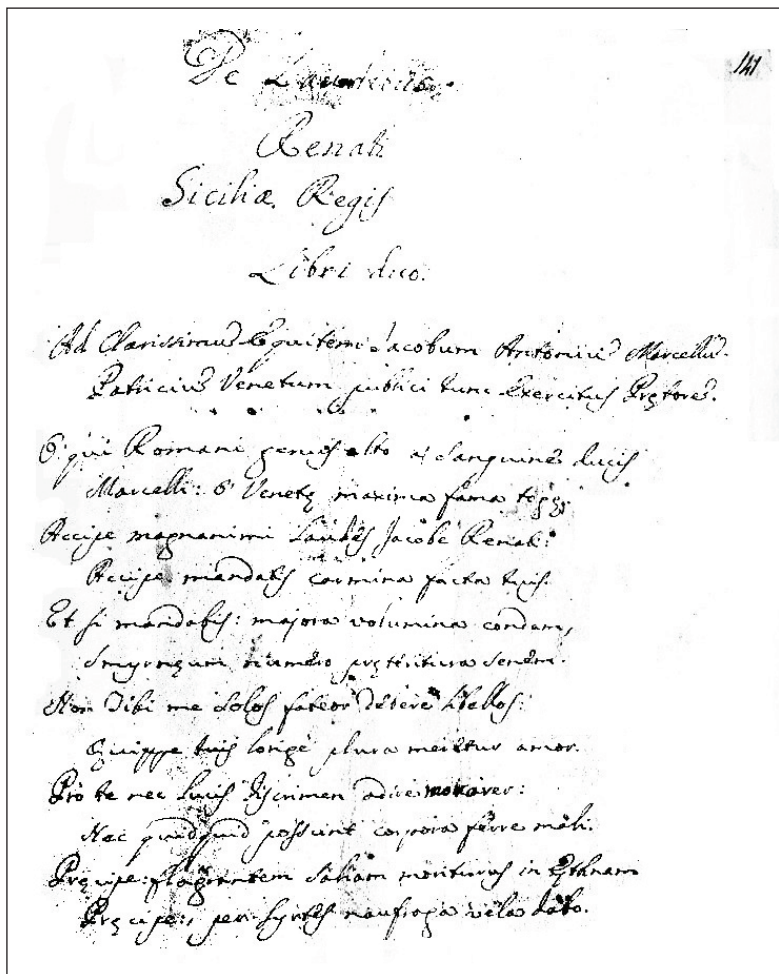 141
De Laudibus
Renati
Siciliæ Regis
Libri duo.
Ad Clarissimũ Equitem Jacobum Antoniũ Marcellũ
Patriciũ Venetum publici tunc Exercitus Prętorẽ.
O qui Romani genus alto a sanguine ducis
Marcelli: O Venetę maxima fama togę:
Accipe magnanimi Laudes Jacobe Renati:
Accipe mandatis carmina facta tuis.
Et si mandabis: majora volumina condam,
Smyrnęum numero pręteritura senem.
Non Tibi me solos fateor debere libellos:
Quippe tuus longe plura meretur amor.
Pro te nec lucis discrimen adire morarer:
Nec quidquid possunt corpora ferre mali.
Pręcipe: flagrantem saliam moriturus in Ęthnam
Pręcipe:, per Syrtes naufraga vela dabo.